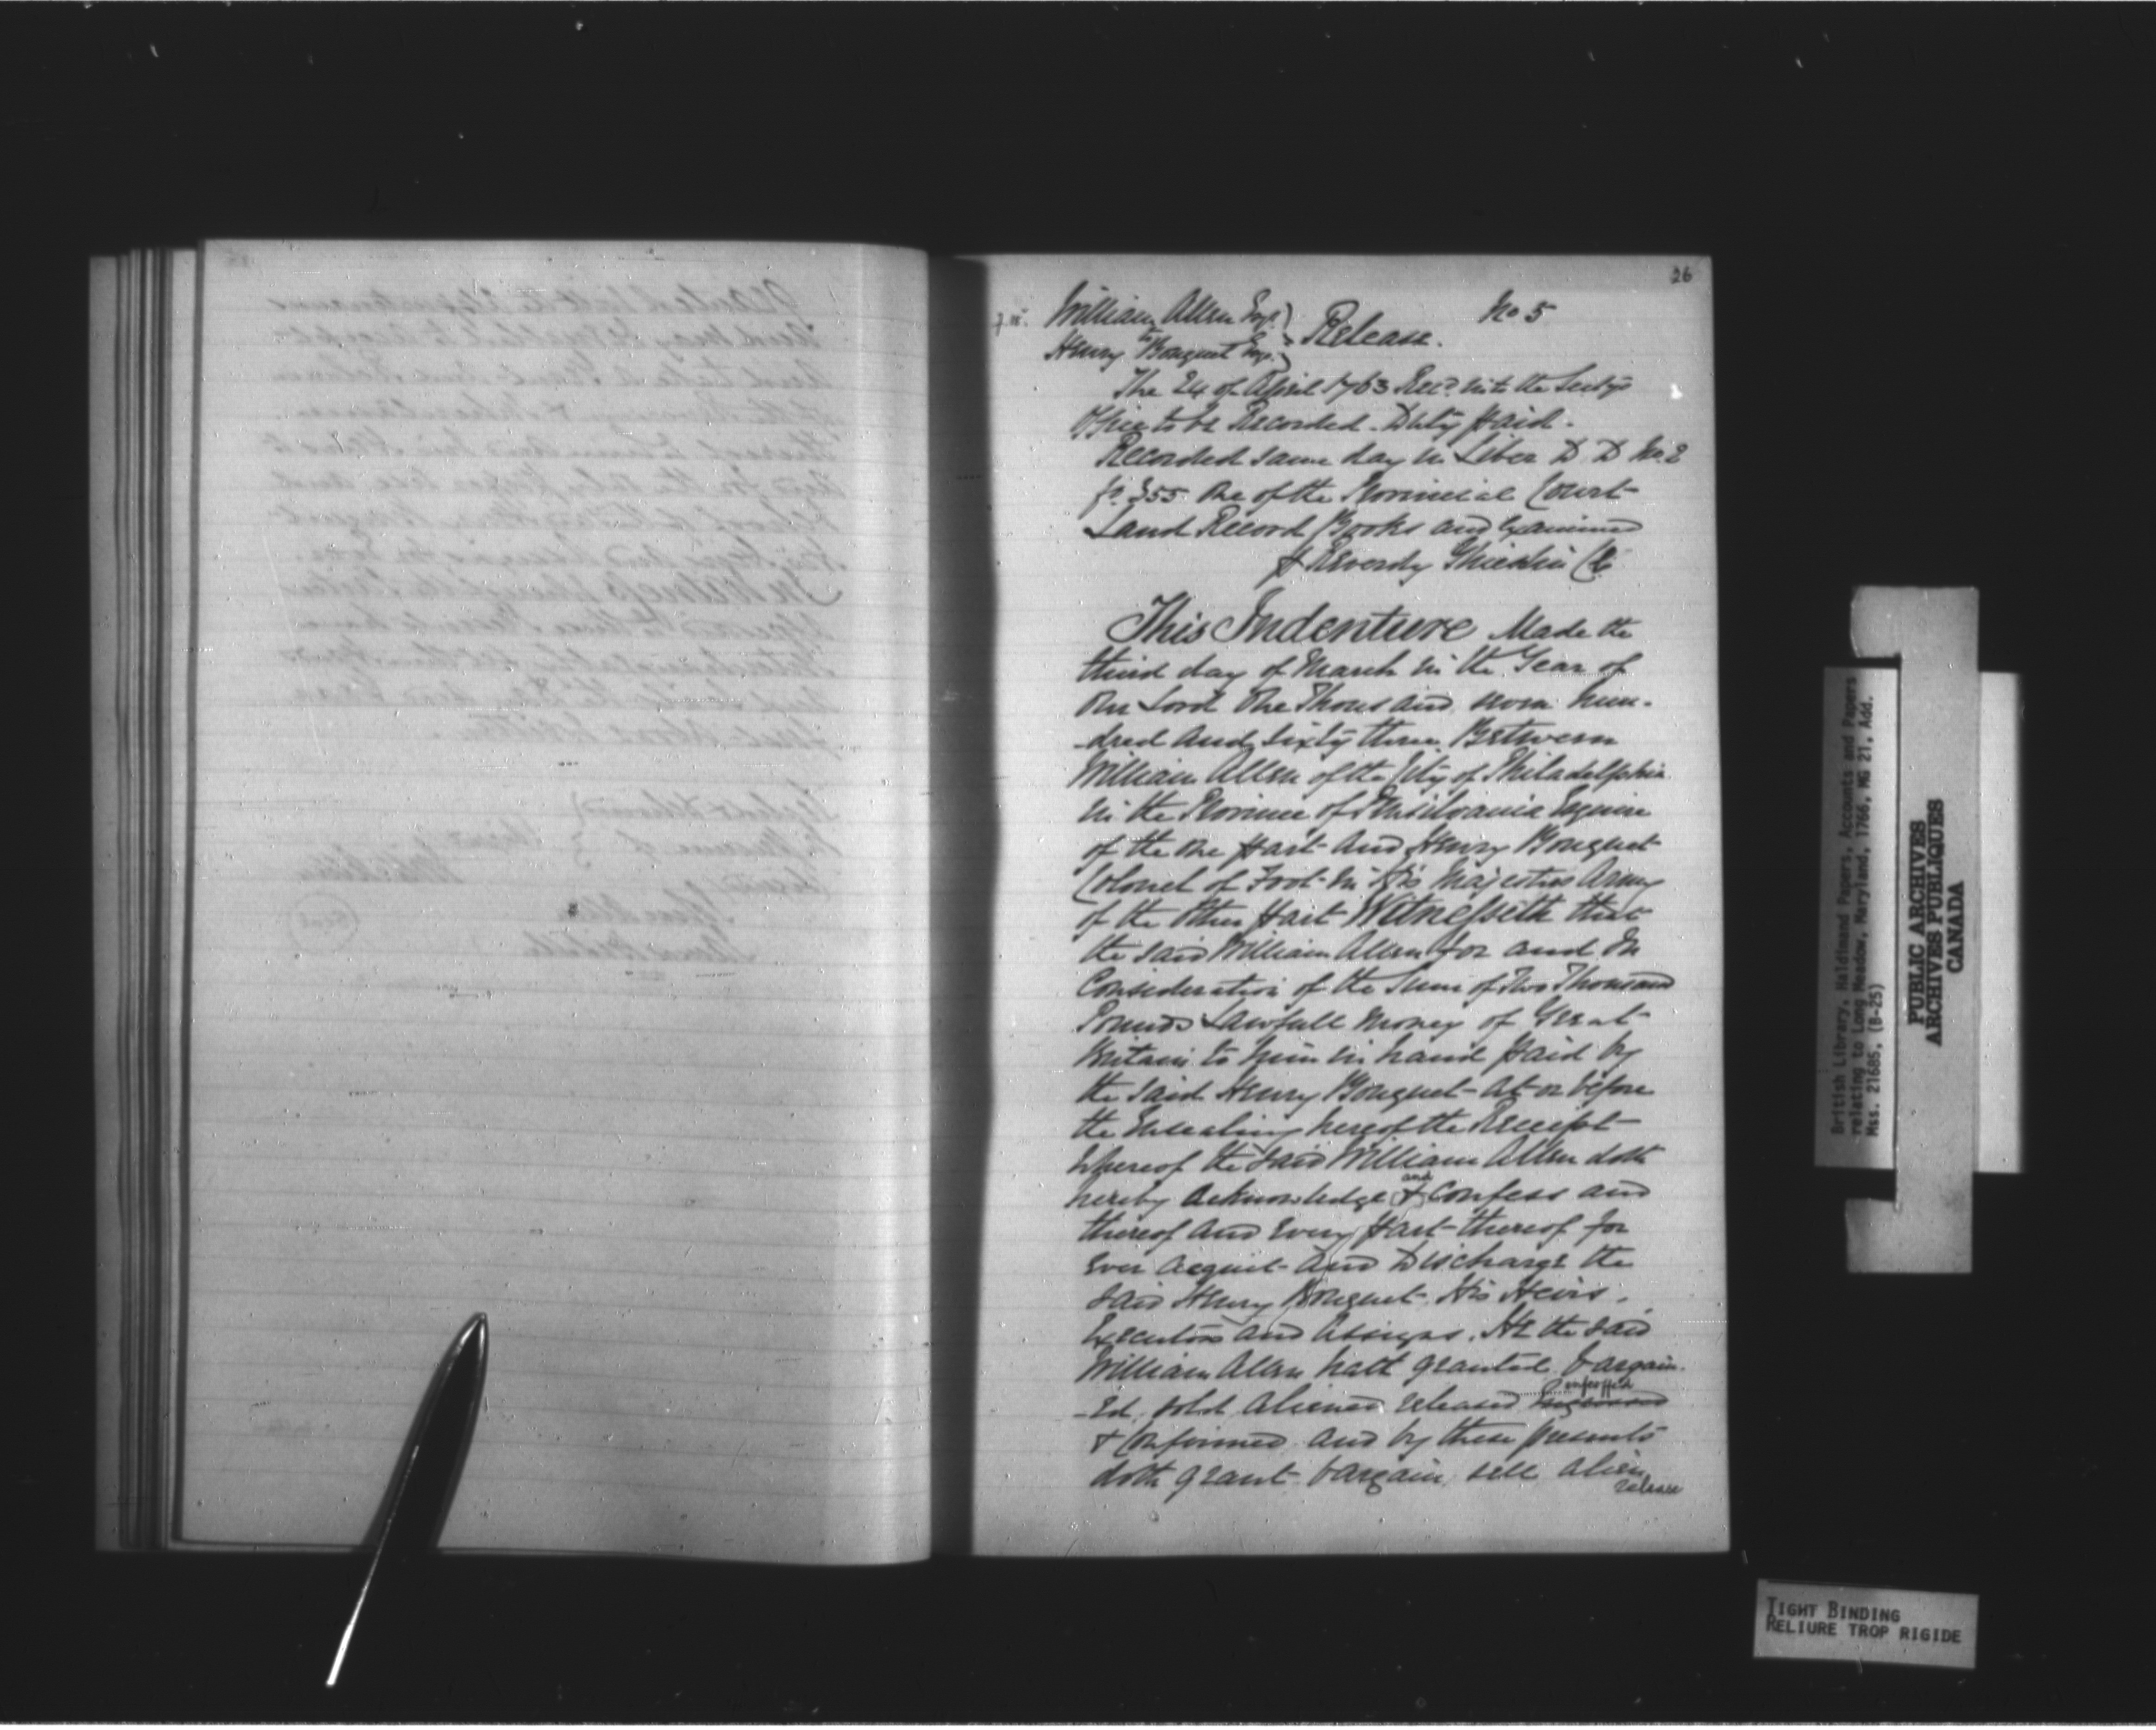 26
William Allen Esqr. } Release. No 5
to
Henry Bouquet Esqr. }
The 24 of April 1763 Recd. into the Sectys
Office to be Recorded. Duty paid.
Recorded same day in Liber D D No. 2
fo. 355 One of the Provincial Court
Land Record Books and Examined
Reverdy Ghiselin Clk
This Indenture Made the
third day of March in the Year of
Our Lord One Thousand seven hun-
-dred and Sixty three Between
William Allen of the City of Philadelphia
in the Province of Pensilvania Esquire
of the One part and Henry Bouquet
Colonel of Foot in His Majesties Army
of the Other part Witnesseth that
the said William Allen for and In
Consideration of the Sum of Two Thousand
Pounds Lawfull money of Great
Britain to him in hand paid by
the said Henry Bouquet at or before
the Ensealing hereof the Receipt
whereof the said William Allen doth
hereby acknowledge and & Confess and
thereof and every part thereof for
ever acquit and Discharge the
said Henry Bouquet His Heirs,
Executors and Assigns. He the said
William Allen hath granted bargain-
-ed, sold aliened released enfeoffed
& Confirmed and by these presents
doth grant bargain sell alien
release
British Library, Haldimand Papers, Accounts and Papers
relating to Long Meadow, Maryland, 1766, MG 21, Add.
Mss. 21685, (B-25)
PUBLIC ARCHIVES
ARCHIVES PUBLIQUES
CANADA
TIGHT BINDING
RELIURE TROP RIGIDE